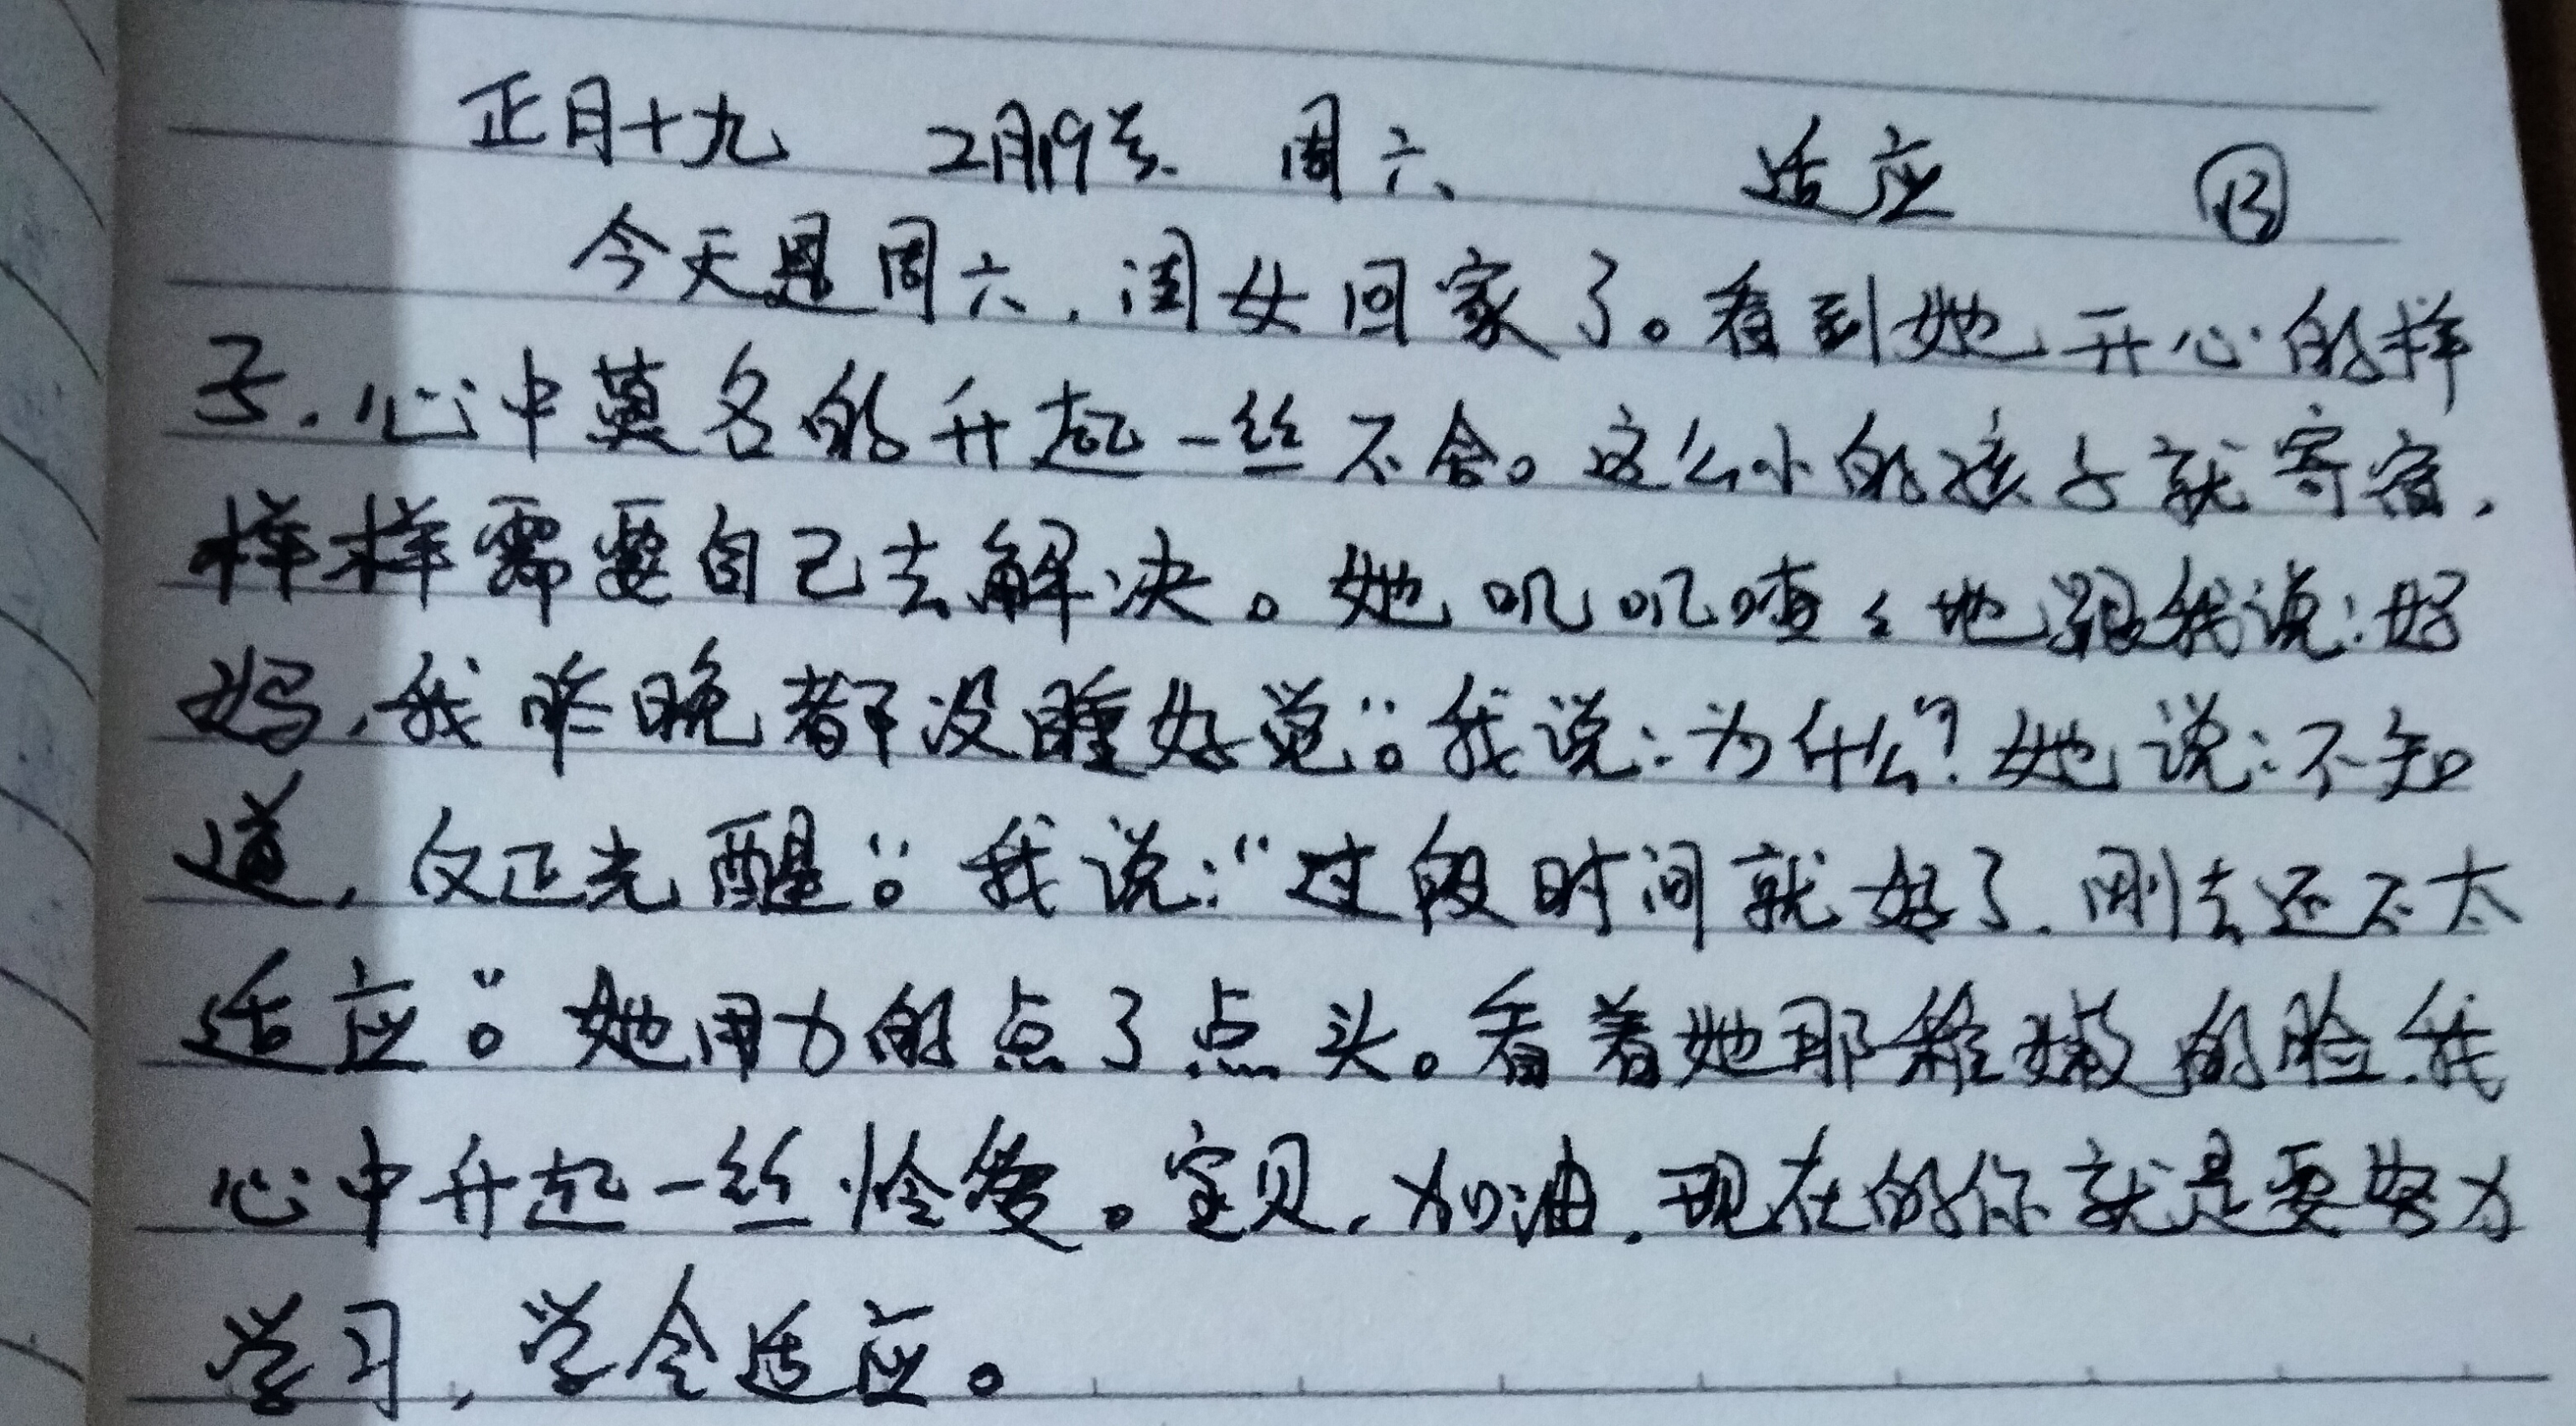 正月十九 2月19号 周六 适应 ⑬
今天是周六,闺女回家了。看到她开心的样
子,心中莫名的升起一丝不舍。这么小的孩子就寄宿,
样样需要自己去解决。她叽叽喳々地跟我说:妈
妈,我昨晚都没睡好觉"。我说:为什么?她说:不知
道,反正光醒"。我说:"过段时间就好了.刚去还不太
适应"。她用力的点了点头。看着她那稚嫩的脸.我
心中升起一丝怜爱。宝贝,加油,现在的你就是要努力
学习,学会适应。